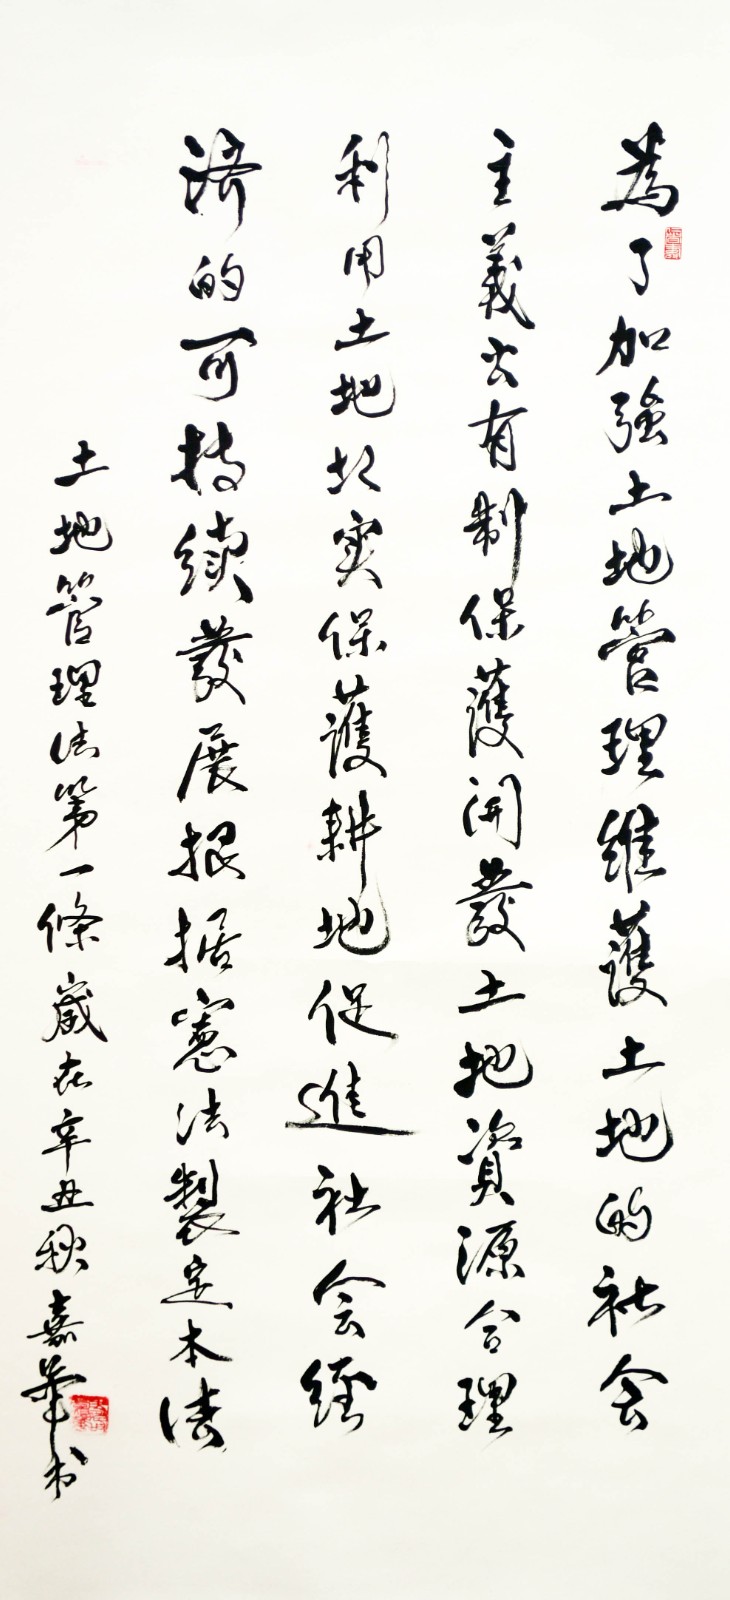 為了加強土地管理維護土地的社会
主義公有制保護開發土地資源合理
利用土地切实保護耕地促進社会經
济的可持續發展根据憲法製定本法
土地管理法第一條歲在辛丑秋嘉華书